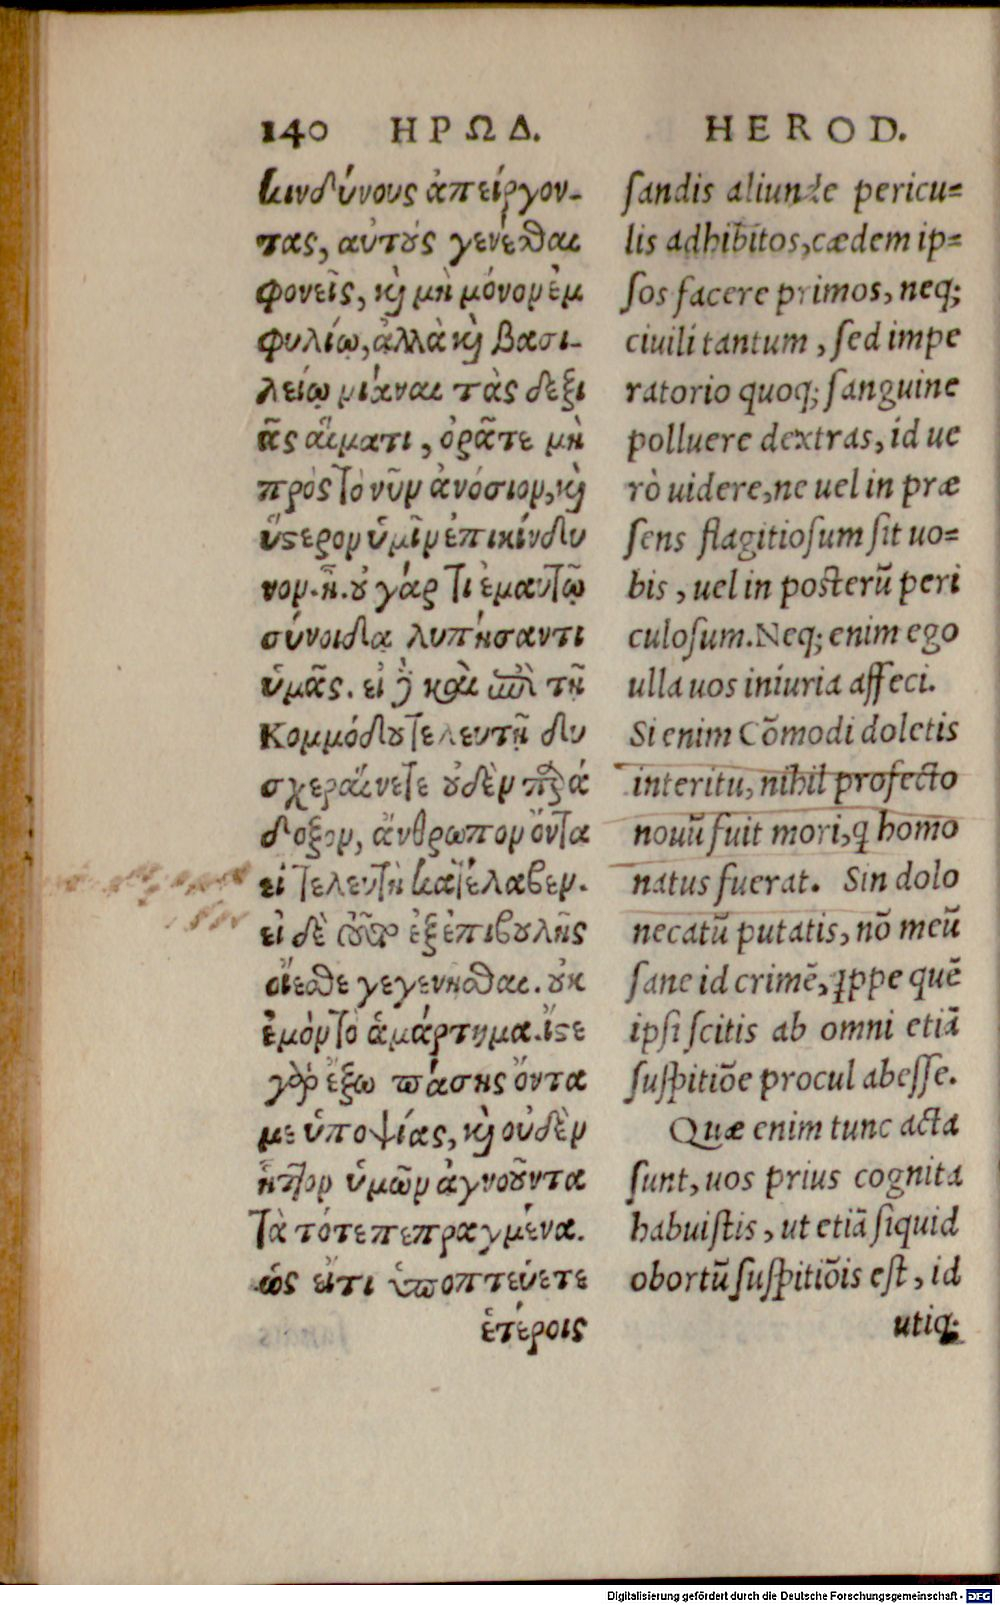 140 ΗΡΩΔ.
κινδύνους ἀπείργον-
τας, αὐτοὺς γενέσθαι
φονεῖς, κὶ μὴ μόνον ἐμ
φυλίῳ, ἀλλὰ κὶ βασι-
λείῳ μιάναι τὰς δεξι
ᾶς αἵματι, ὁρᾶτε μὴ
πρὸς τὸ νῦν ἀνόσιον, κὶ
ὕστερον ὑμῖν ἐπικίνδυ
νον. ᾖ. οὐ γάρ τι ἐμαυτῷ
σύνοιδα λυπήσαντι
ὑμᾶς. εἰ γὸ καὶ ἐπὶ τῇ
Κομμόδου τελευτῇ δυ
σχεραίνετε οὐδὲν παρά
δοξον, ἄνθρωπον ὄντα
εἰ τελευτὴ κατέλαβεν.
εἰ δὲ αὐτὸν ἐξ ἐπιβουλῆς
οἴεσθε γεγενῆσθαι. οὐκ
ἐμὸν τὸ ἁμάρτημα. ἴστε
γὰρ ἔξω πάσης ὄντα
με ὑποψίας, κὶ οὐδὲν
ἧττον ὑμῶν ἀγνοοῦντα
τὰ τότε πεπραγμένα.
ὡς εἴτι ὑποπτεύετε
ἑτέροις
HEROD.
sandis aliunde pericu=
lis adhibitos, cædem ip=
sos facere primos, neq;
ciuili tantum, sed impe
ratorio quoq; sanguine
polluere dextras, id ue
rò uidere, ne uel in præ
sens flagitiosum sit uo=
bis, uel in posterũ peri
culosum. Neq; enim ego
ulla uos iniuria affeci.
Si enim Cõmodi doletis
interitu, nihil profecto
nouũ fuit mori, ꝗ homo
natus fuerat. Sin dolo
necatũ putatis, nõ meũ
sane id crimẽ, ꝗppe quẽ
ipsi scitis ab omni etiã
suspitiõe procul abesse.
Quæ enim tunc acta
sunt, uos prius cognita
habuistis, ut etiã siquid
obortũ suspitiõis est, id
utiq;
Digitalisierung gefördert durch die Deutsche Forschungsgemeinschaft - DFG